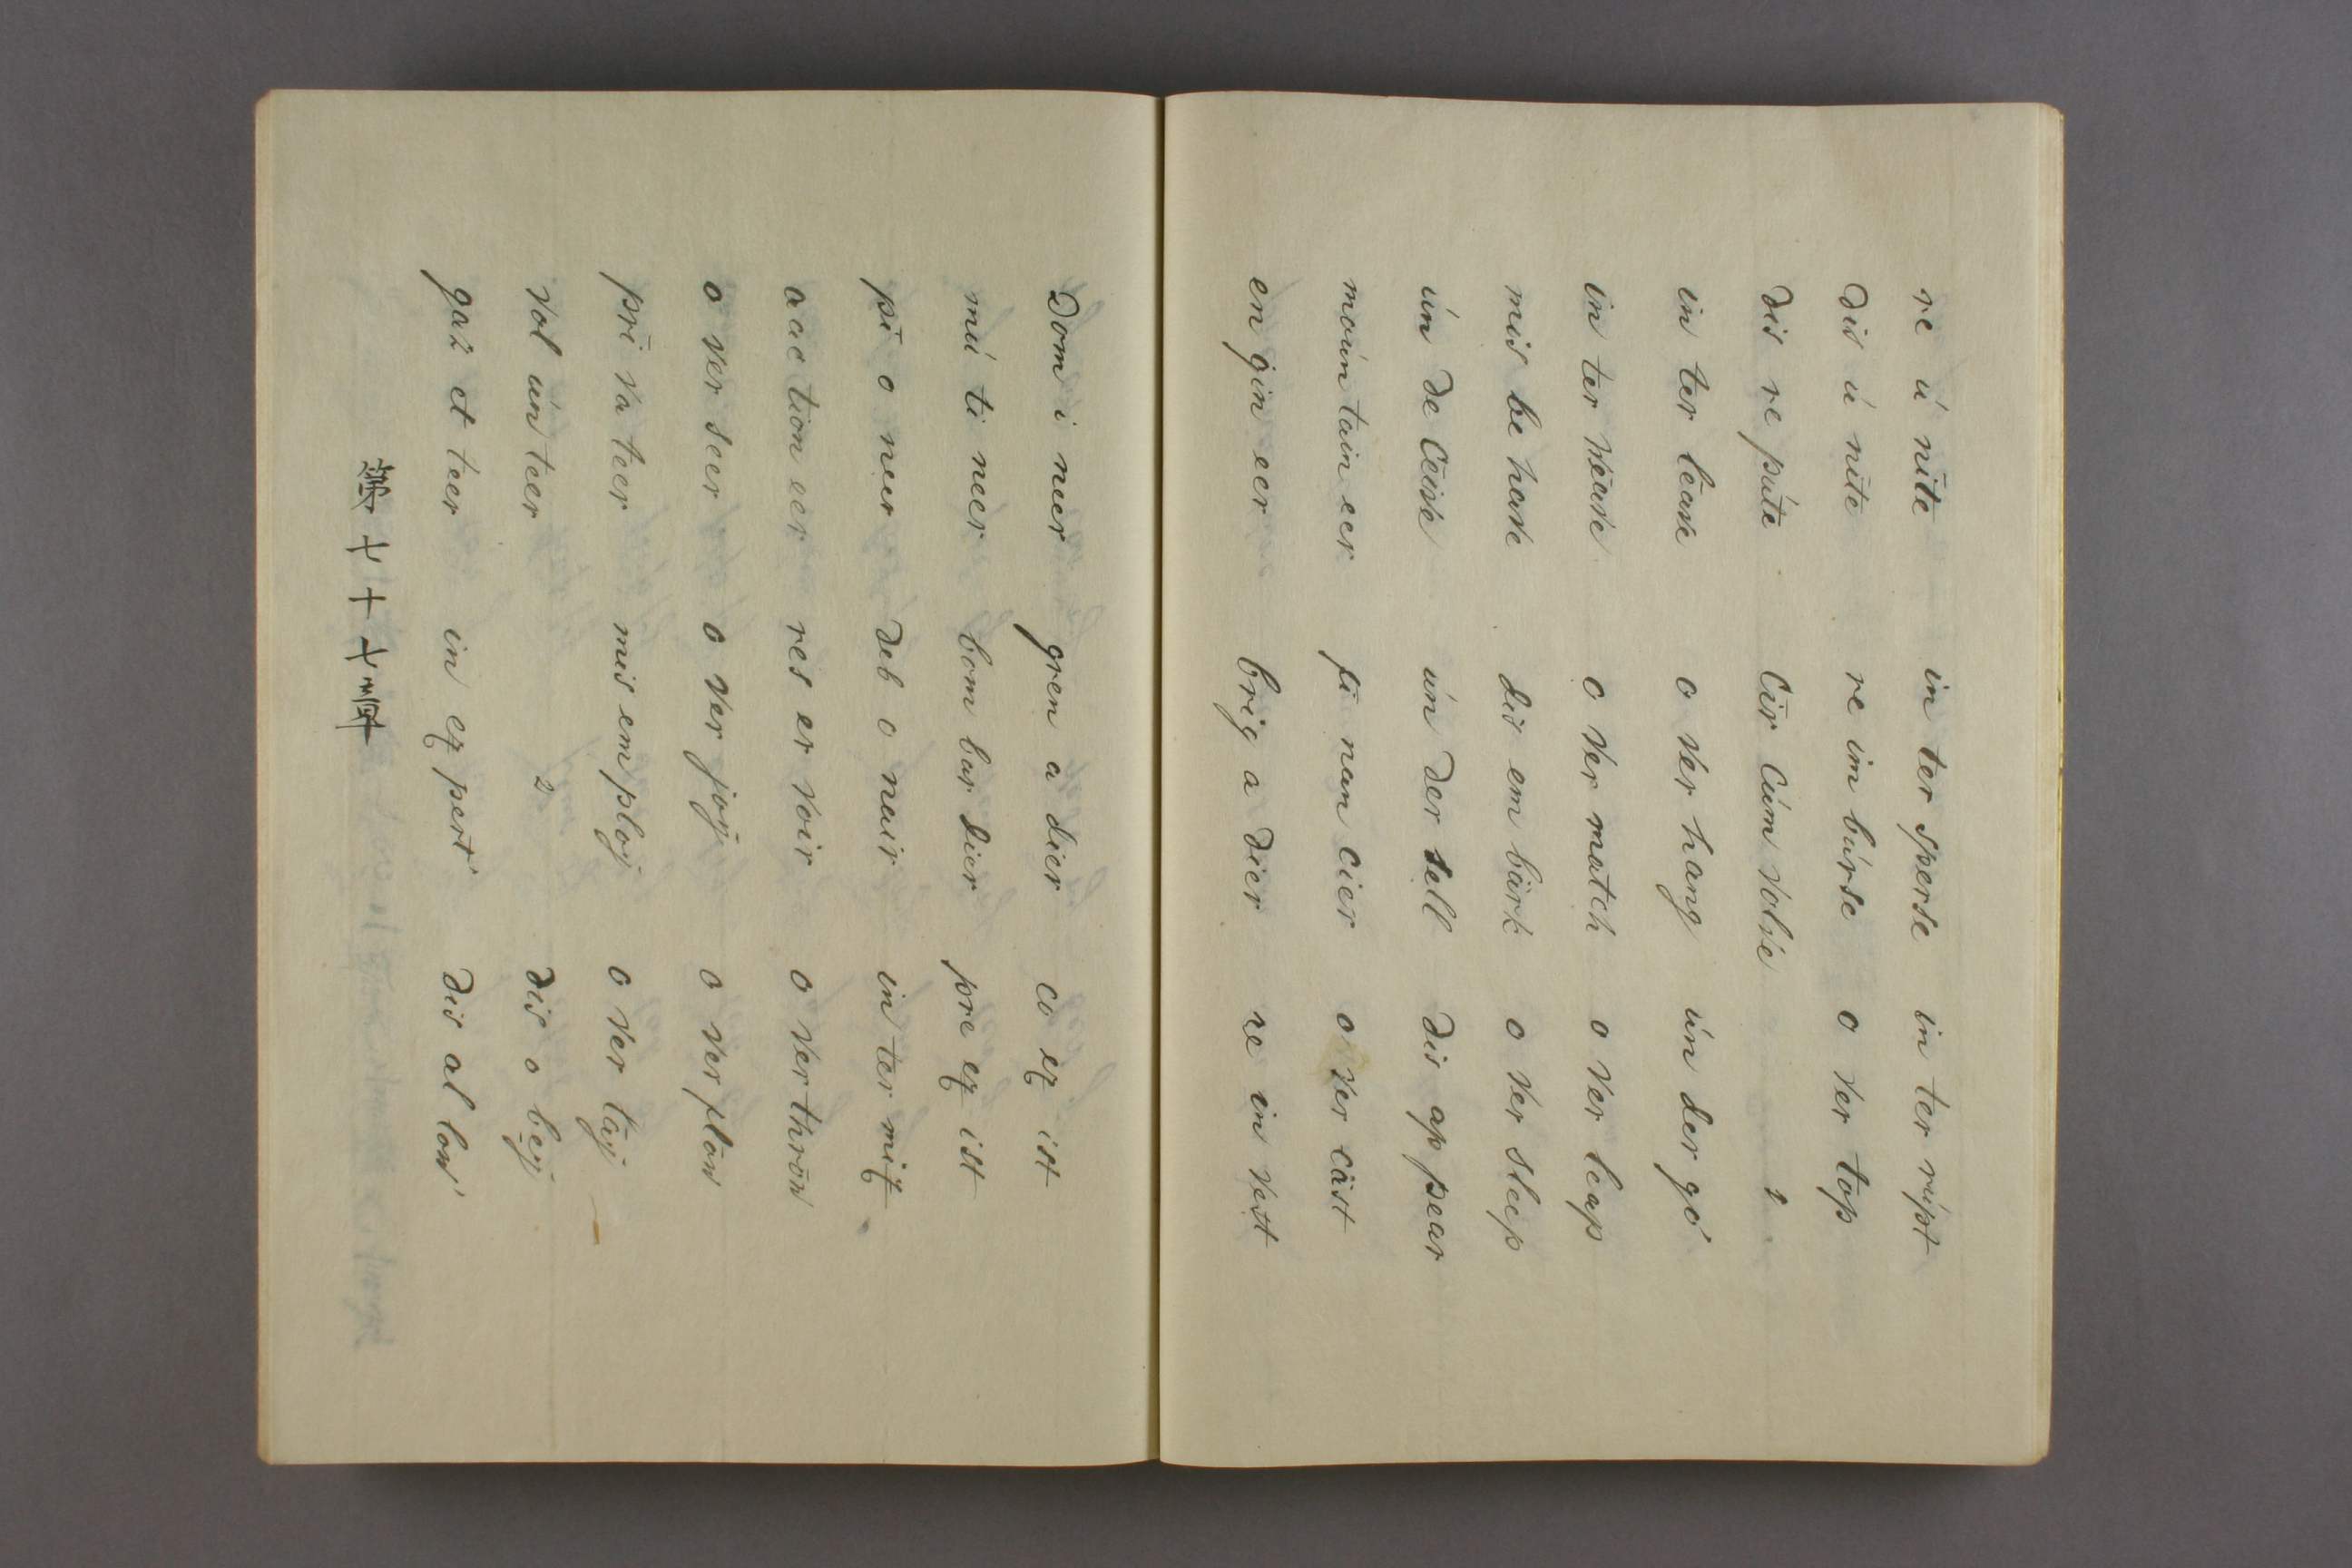 re ú nīte in ter sperse in ter rúpt
dis ú nīte re im búrse o ver top
dis re púte Cir Cúm volve 2
in ter leave o ver hang ún der gó
in ter weave o ver match o ver leap
mis be have dis em bärk o ver sleep
ún de Ceive ún der sell dis ap pear
moún tain eer fi nan cier o ver cäst
en gin eer brig a dier re in vest
Dom i neer gren a dier co ex ist
mú ti neer bom bar dier pre ex ist
pī o neer deb o nair in ter mix
auc tion eer res er voir o ver thrōw
o ver seer o ver joy o ver flōw
prī va teer mis em ploy o ver lāy
vol ún teer 2 dis o bey
gaz et teer in ex pert dis al low
第十十十章